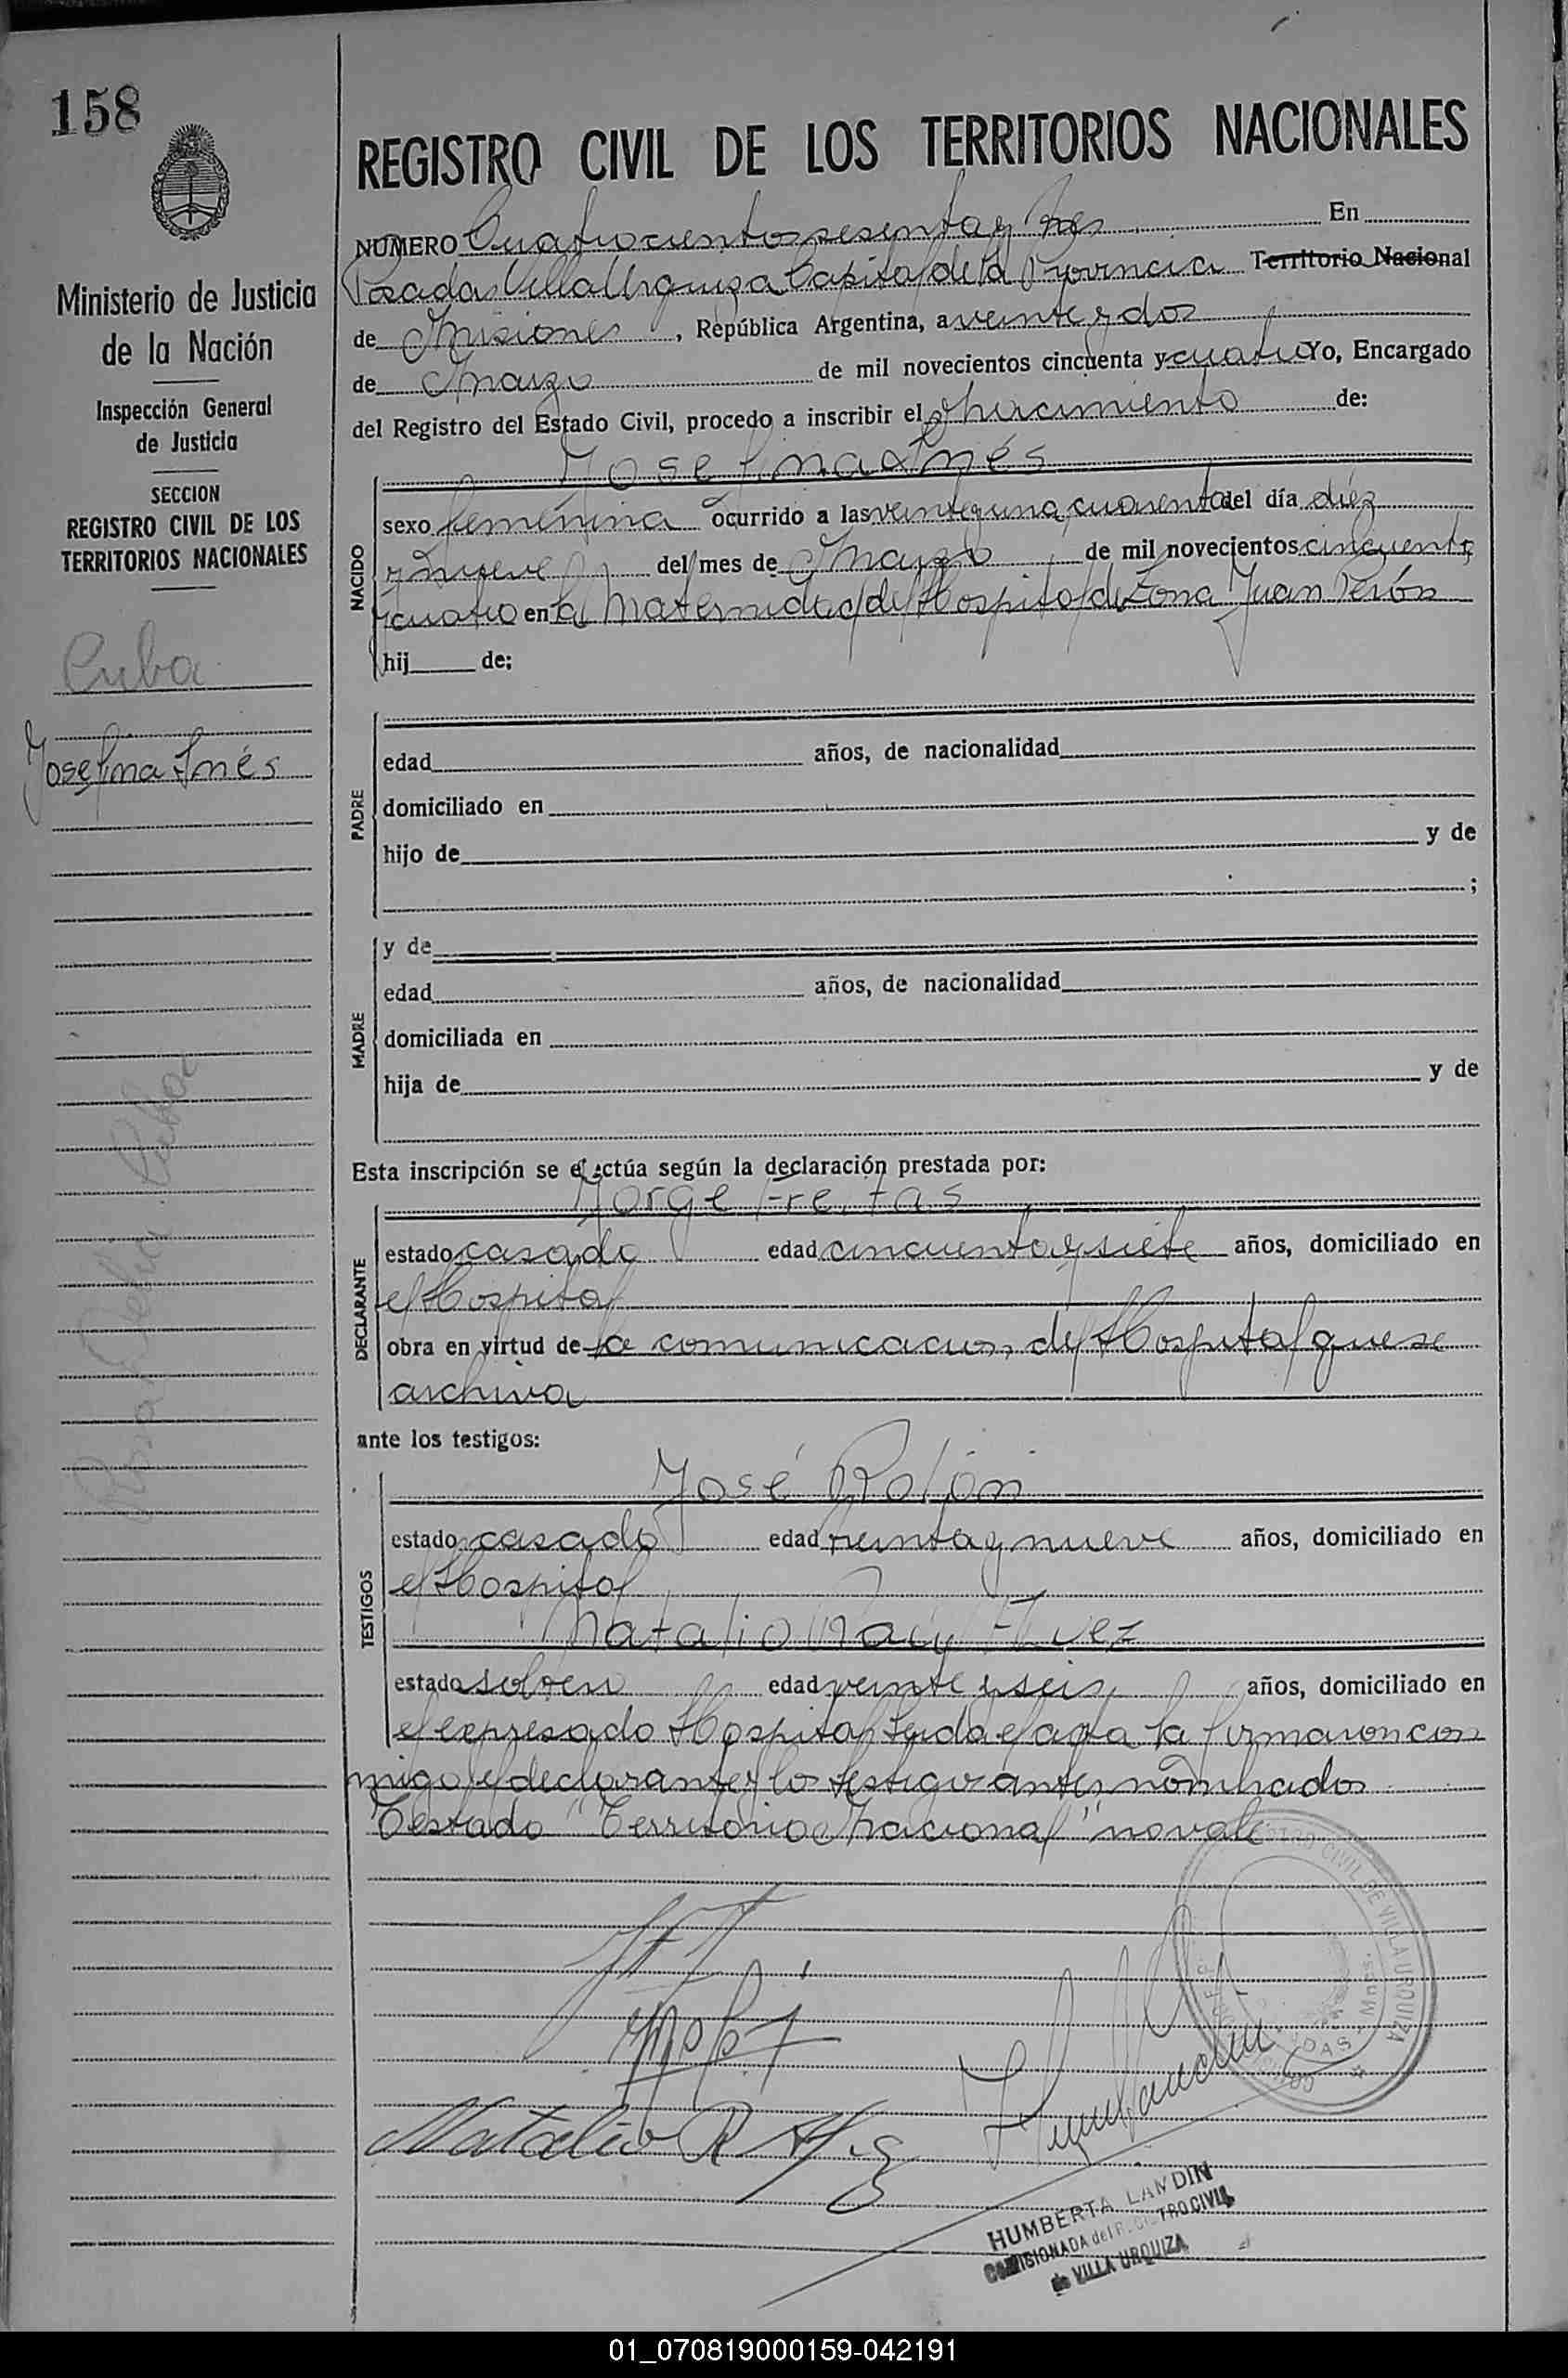 158
Ministerio de Justicia
de la Nación
Inspección General
de Justicia
SECCION
REGISTRO CIVIL DE LOS
TERRITORIOS NACIONALES
Cuba
Josefina Inés
REGISTRO CIVIL DE LOS TERRITORIOS NACIONALES
NUMERO Cuatrocientos sesenta y tres En
Posadas Villa Urquiza Capital de la Provincia Territorio Nacional
de Misiones, República Argentina, a veinte y dos
de Marzo de mil novecientos cincuenta y cuatro Yo, Encargado
del Registro del Estado Civil, procedo a inscribir el Nacimiento de:
Josefina Inés
NACIDO
sexo femenina ocurrido a las veinte y una cuarenta del día diez
y nueve del mes de Marzo de mil novecientos cincuenta
y cuatro en la Maternidad del Hospital de Zona Juan Perón
hij de;
PADRE
edad años, de nacionalidad
domiciliado en
hijo de y de
;
MADRE
y de
edad años, de nacionalidad
domiciliada en
hija de y de
Esta inscripción se efectúa según la declaración prestada por:
Jorge Freitas
DECLARANTE
estado casado edad cincuenta y siete años, domiciliado en
el Hospital
obra en virtud de la comunicacion del Hospital que se
archiva
ante los testigos:
José Rolón
TESTIGOS
estado casado edad treinta y nueve años, domiciliado en
el Hospital
Natalio Raúl
estado soltero edad veinte y seis años, domiciliado en
el expresado Hospital Leida el acta la firmaron con
migo el declarante y los testigos antes nombrados
Testado "Territorio Nacional" no vale
Natalio R
REGISTRO CIVIL DE VILLA URQUIZA
HUMBERTA LANDIN
COMISIONADA del REGISTRO CIVIL
de VILLA URQUIZA
01_070819000159-042191